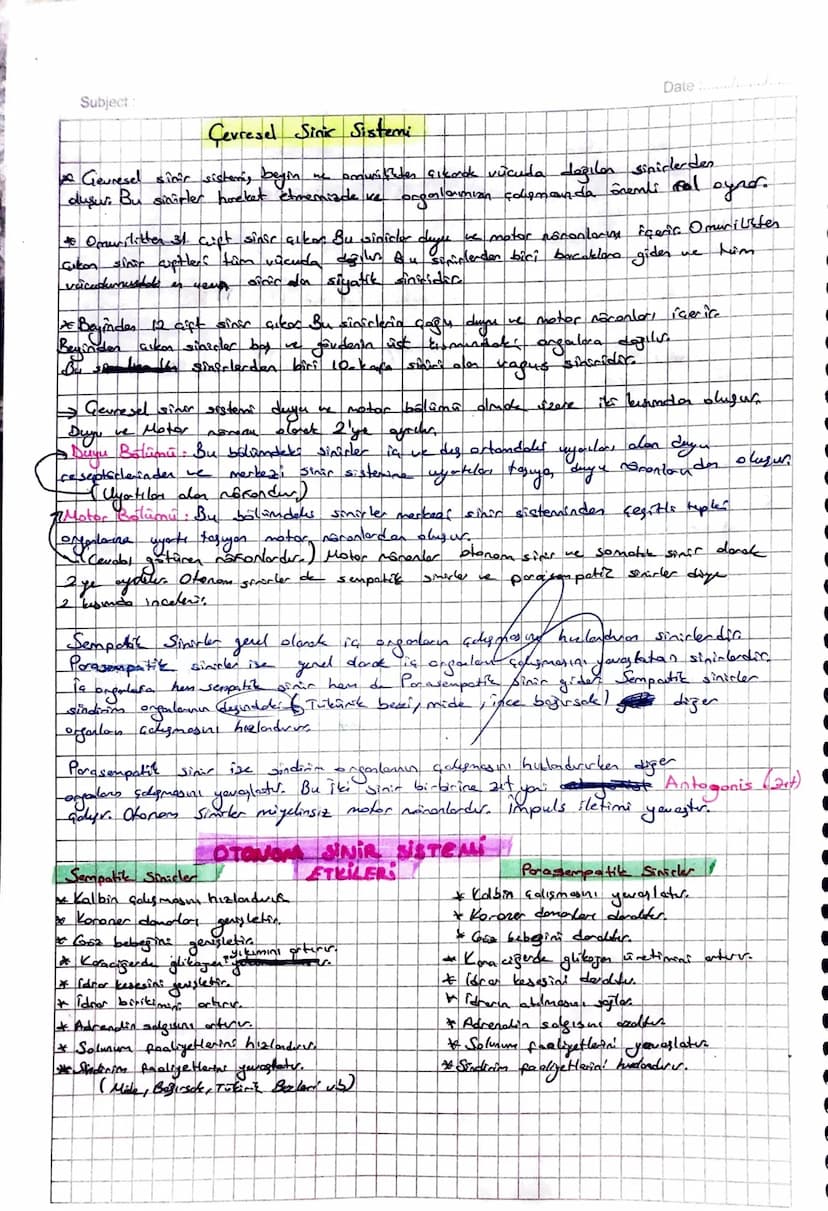 Subject :
Date :
Çevresel Sinir Sistemi
* Çevresel sinir sistemi, beyin ve omurilikten çıkarak vücuda dağılan sinirlerden
oluşur. Bu sinirler hareket etmemizde ve organlarımızın çalışmasında önemli rol oynar.
* Omurilikten 31 çift sinir çıkar. Bu sinirler duyu ve motor nöronlarını içerir. Omurilikten
çıkan sinir çiftleri tüm vücuda dağılır. Bu sinirlerden biri bacaklara giden ve tüm
vücudumuzdaki en uzun sinir olan siyatik siniridir.
* Beyinden 12 çift sinir çıkar. Bu sinirlerin çoğu duyu ve motor nöronları içerir.
Beyinden çıkan sinirler baş ve gövdenin üst kısmındaki organlara dağılır.
Bu sinirlerden biri 10. kafa siniri olan vagus siniridir.
→ Çevresel sinir sistemi duyu ve motor bölümü olmak üzere iki kısımdan oluşur.
Duyu ve Motor nöronu olarak 2'ye ayrılır.
→ Duyu Bölümü: Bu bölümdeki sinirler iç ve dış ortamdaki uyarıları alan duyu
reseptörlerinden ve merkezi sinir sistemine uyartıları taşıyan, duyu nöronlarından oluşur.
(Uyartıları alan nörondur.)
Motor Bölümü: Bu bölümdeki sinirler merkezi sinir sisteminden çeşitli tepki
organlarına uyartı taşıyan motor nöronlardan oluşur.
(Cevabı götüren nöronlardır.) Motor nöronlar otonom sinir ve somatik sinir olarak
2'ye ayrılır. Otonom sinirler de sempatik sinirler ve parasempatik sinirler diye
2 kısımda incelenir.
Sempatik Sinirler genel olarak iç organların çalışmasını hızlandıran sinirlerdir.
Parasempatik sinirler ise genel olarak iç organların çalışmasını yavaşlatan sinirlerdir.
İç organlara hem sempatik sinir hem de Parasempatik sinir gider. Sempatik sinirler
sindirim organlarının dışındaki (Tükürük bezi, mide, ince bağırsak) diğer
organların çalışmasını hızlandırır.
Parasempatik sinir ise sindirim organlarının çalışmasını hızlandırırken diğer
organların çalışmasını yavaşlatır. Bu iki sinir birbirine zıt yani Antagonis (zıt)
çalışır. Otonom Sinirler miyelinsiz motor nöronlardır. İmpuls iletimi yavaştır.
OTONOM SİNİR SİSTEMİ
ETKİLERİ
Sempatik Sinirler
* Kalbin çalışmasını hızlandırır
* Koroner damarları genişletir.
* Göz bebeğini genişletir.
* Karaciğerde glikojen yıkımını artırır.
* İdrar kesesini genişletir.
* İdrar birikimini artırır.
* Adrenalin salgısını artırır.
* Solunum faaliyetlerini hızlandırır.
* Sindirim faaliyetlerini yavaşlatır.
(Mide, Bağırsak, Tükürük Bezleri vb)
Parasempatik Sinirler
* Kalbin çalışmasını yavaşlatır.
* Koroner damarları daraltır.
* Göz bebeğini daraltır.
* Karaciğerde glikojen üretimini artırır.
* İdrar kesesini daraltır.
* İdrarın atılmasını sağlar
* Adrenalin salgısını azaltır
* Solunum faaliyetlerini yavaşlatır
* Sindirim faaliyetlerini hızlandırır.